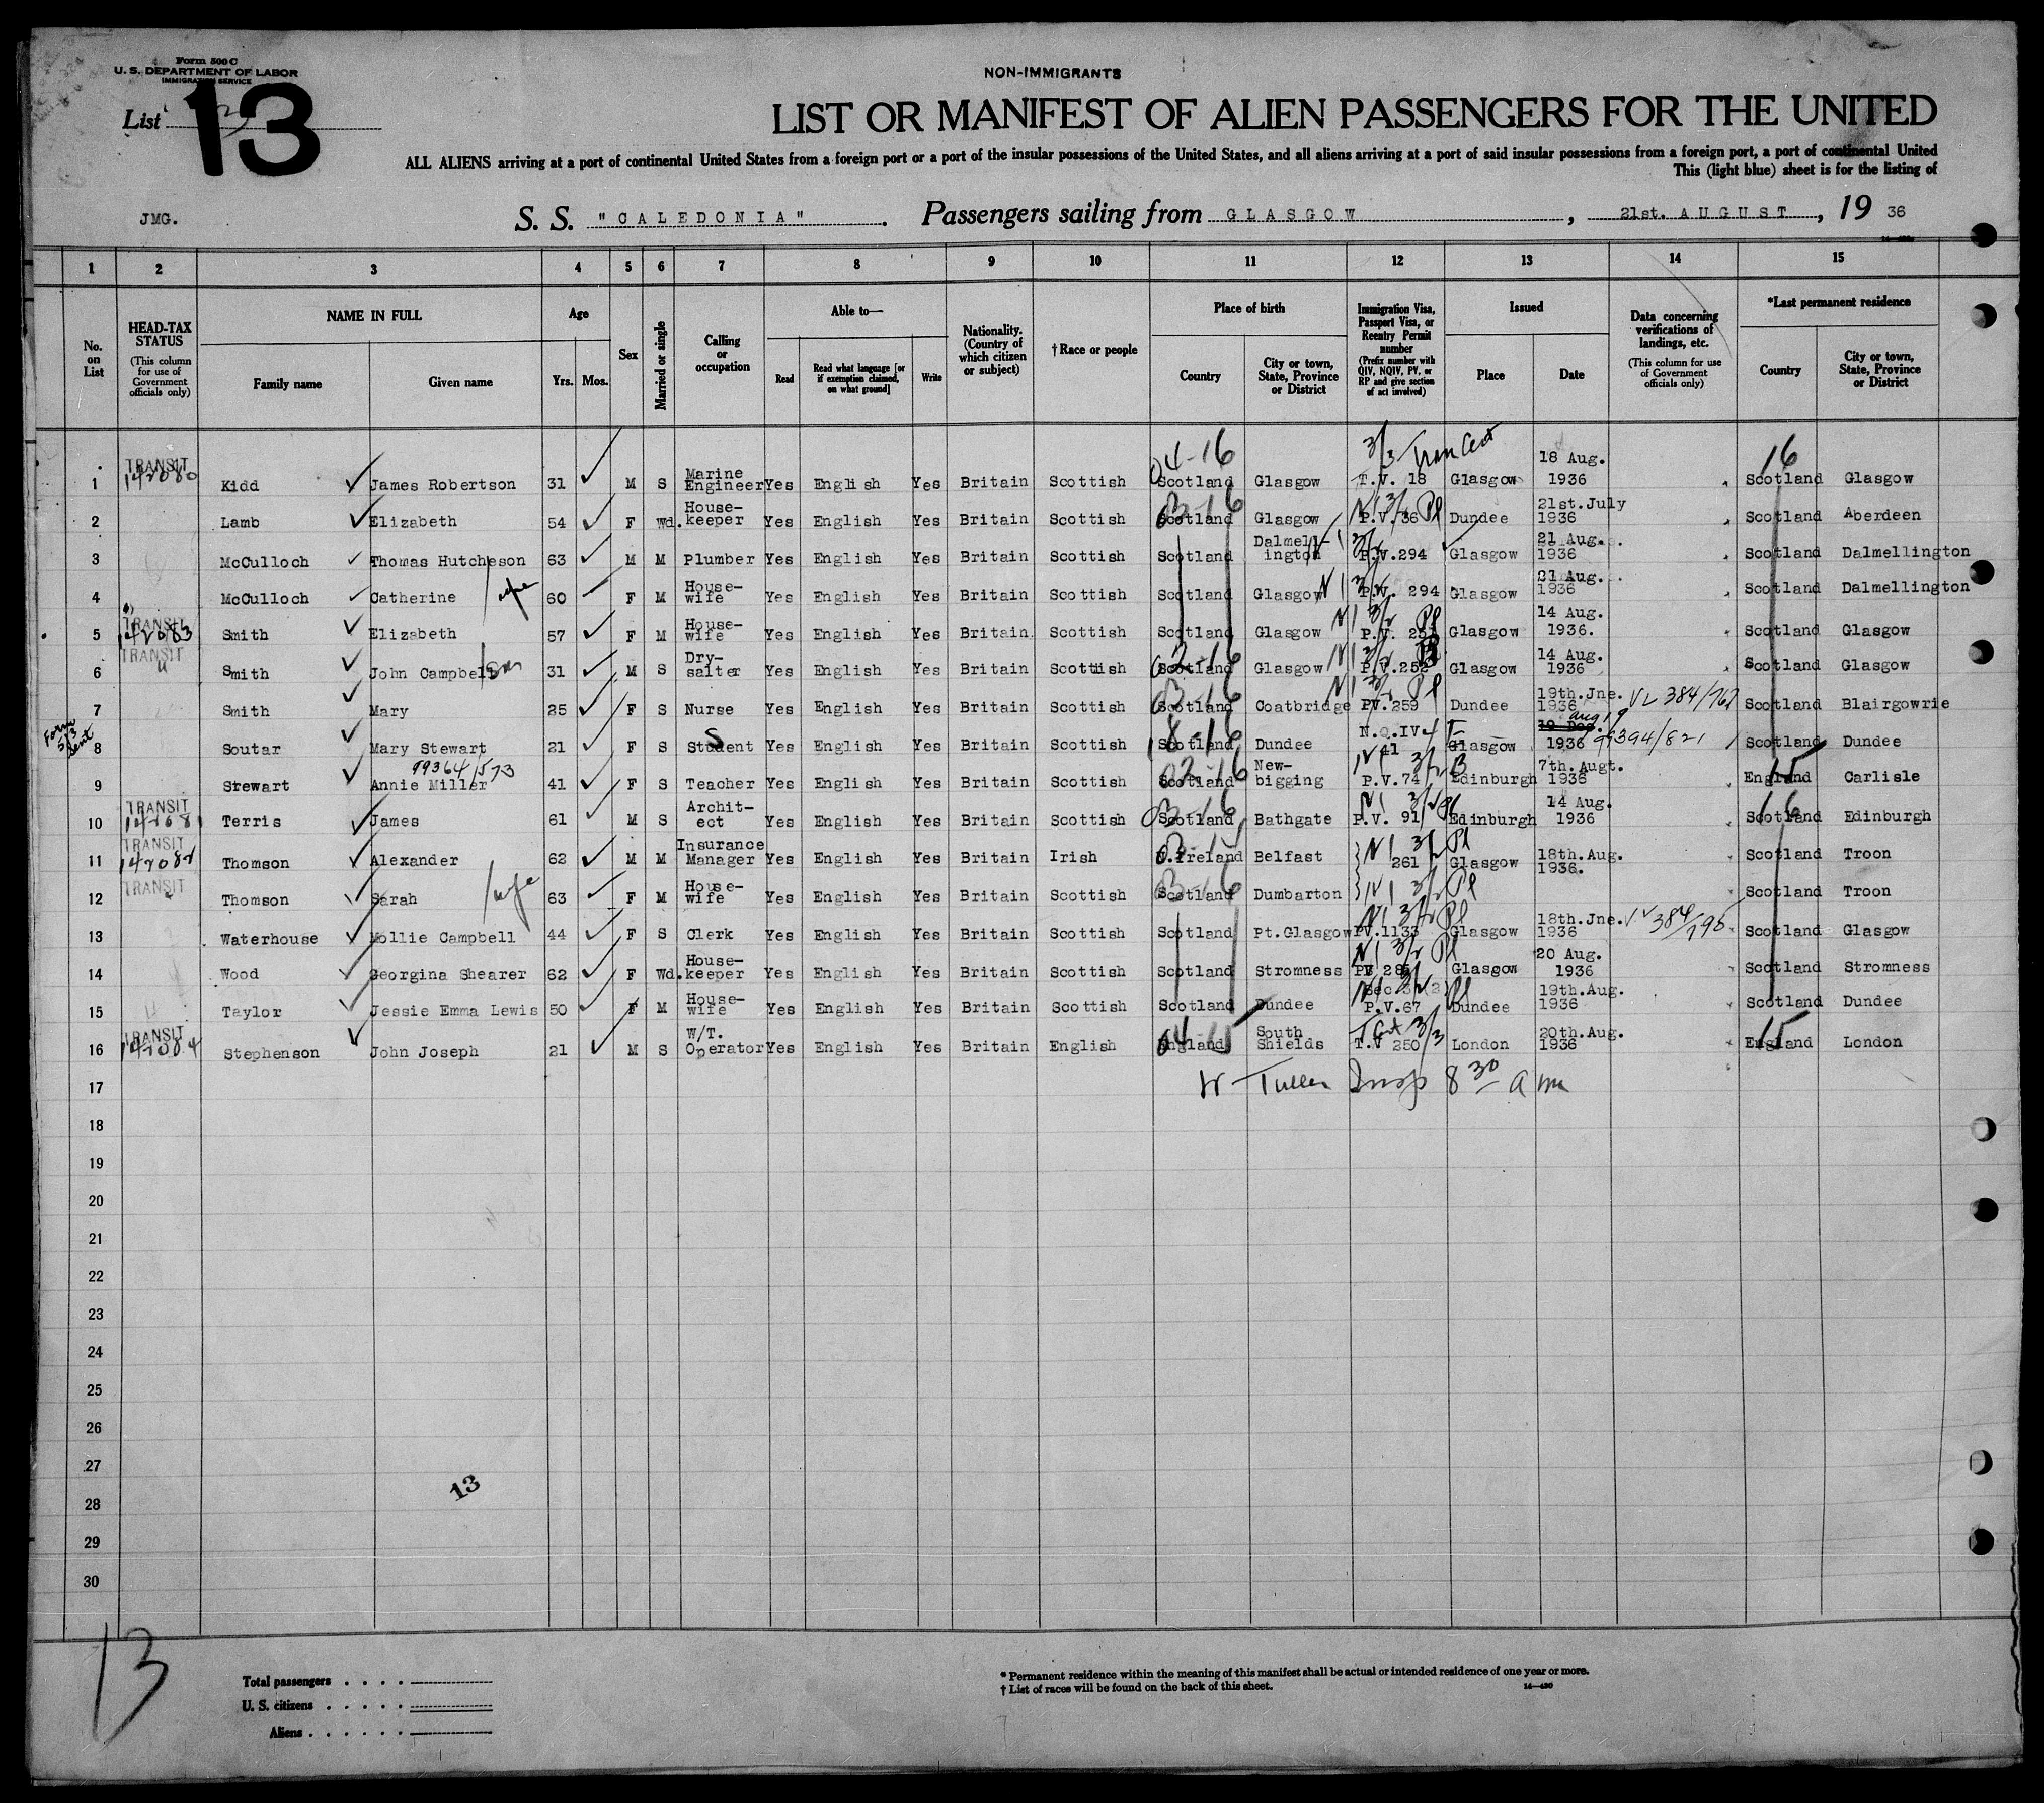 Form 500 C
U. S. DEPARTMENT OF LABOR
IMMIGRATION SERVICE
NON-IMMIGRANTS
List 13
LIST OR MANIFEST OF ALIEN PASSENGERS FOR THE UNITED
ALL ALIENS arriving at a port of continental United States from a foreign port or a port of the insular possessions of the United States, and all aliens arriving at a port of said insular possessions from a foreign port, a port of continental United
This (light blue) sheet is for the listing of
JMG. S. S. "CALEDONIA". Passengers sailing from GLASGOW, 21st. AUGUST, 19 36
1 2 3 4 5 6 7 8 9 10 11 12 13 14 15
No. on List
HEAD-TAX STATUS (This column for use of Government officials only)
NAME IN FULL Family name Given name
Age Yrs. Mos.
Sex
Married or single
Calling or occupation
Able to— Read Read what language [or if exemption claimed, on what ground] Write
Nationality. (Country of which citizen or subject)
†Race or people
Place of birth Country City or town, State, Province or District
Immigration Visa, Passport Visa, or Reentry Permit number (Prefix number with QIV, NQIV, PV, or RP and give section of act involved)
Issued Place Date
Data concerning verifications of landings, etc. (This column for use of Government officials only)
*Last permanent residence Country City or town, State, Province or District
1 TRANSIT 142080 Kidd James Robertson 31 M S Marine Engineer Yes English Yes Britain Scottish 04-16 Scotland Glasgow 3/3 T.V. 18 Glasgow 18 Aug. 1936 16 Scotland Glasgow
2 Lamb Elizabeth 54 F Wd. House-keeper Yes English Yes Britain Scottish Scotland Glasgow P.V. 36 Dundee 21st.July 1936 Scotland Aberdeen
3 McCulloch Thomas Hutcheson 63 M M Plumber Yes English Yes Britain Scottish Scotland Dalmellington P.V.294 Glasgow 21 Aug. 1936 Scotland Dalmellington
4 McCulloch Catherine wife 60 F M House-wife Yes English Yes Britain Scottish Scotland Glasgow P.V. 294 Glasgow 21 Aug. 1936 Scotland Dalmellington
5 TRANSIT 142083 Smith Elizabeth 57 F M House-wife Yes English Yes Britain Scottish Scotland Glasgow P.V. Glasgow 14 Aug. 1936. Scotland Glasgow
6 TRANSIT Smith John Campbell son 31 M S Dry-salter Yes English Yes Britain Scottish Scotland Glasgow P.V.252 Glasgow 14 Aug. 1936 Scotland Glasgow
7 Smith Mary 25 F S Nurse Yes English Yes Britain Scottish Scotland Coatbridge PV.259 Dundee 19th.Jne. 1936 VL 384/767 Scotland Blairgowrie
Form 513 sent
8 Soutar Mary Stewart 21 F S Student Yes English Yes Britain Scottish 18-16 Scotland Dundee N.Q.IV 4 E 41 Glasgow Aug 19 1936 99394/821 Scotland Dundee
9 Stewart Annie Miller 99364/573 41 F S Teacher Yes English Yes Britain Scottish Scotland New-bigging P.V.74 Edinburgh 7th.Augt. 1936 15 England Carlisle
10 TRANSIT 142081 Terris James 61 M S Archit-ect Yes English Yes Britain Scottish Scotland Bathgate P.V. 91 Edinburgh 14 Aug. 1936 16 Scotland Edinburgh
11 TRANSIT 142082 Thomson Alexander 62 M M Insurance Manager Yes English Yes Britain Irish Ireland Belfast 261 Glasgow 18th.Aug. 1936. Scotland Troon
12 TRANSIT Thomson Sarah wife 63 F M House-wife Yes English Yes Britain Scottish Scotland Dumbarton Scotland Troon
13 Waterhouse Mollie Campbell 44 F S Clerk Yes English Yes Britain Scottish Scotland Pt.Glasgow PV.1133 Glasgow 18th.Jne. 1936 384/795 Scotland Glasgow
14 Wood Georgina Shearer 62 F Wd. House-keeper Yes English Yes Britain Scottish Scotland Stromness Glasgow 20 Aug. 1936 Scotland Stromness
15 Taylor Jessie Emma Lewis 50 F M House-wife Yes English Yes Britain Scottish Scotland Dundee P.V.67 Dundee 19th.Aug. 1936 Scotland Dundee
16 TRANSIT 142084 Stephenson John Joseph 21 M S W/T. Operator Yes English Yes Britain English 04 15 England South Shields T.V 250 London 20th.Aug. 1936 15 England London
17 Insp 8 30 am
18
19
20
21
22
23
24
25
26
27
28
29
30
13
13
Total passengers
U. S. citizens
Aliens
* Permanent residence within the meaning of this manifest shall be actual or intended residence of one year or more.
† List of races will be found on the back of this sheet.
14—430